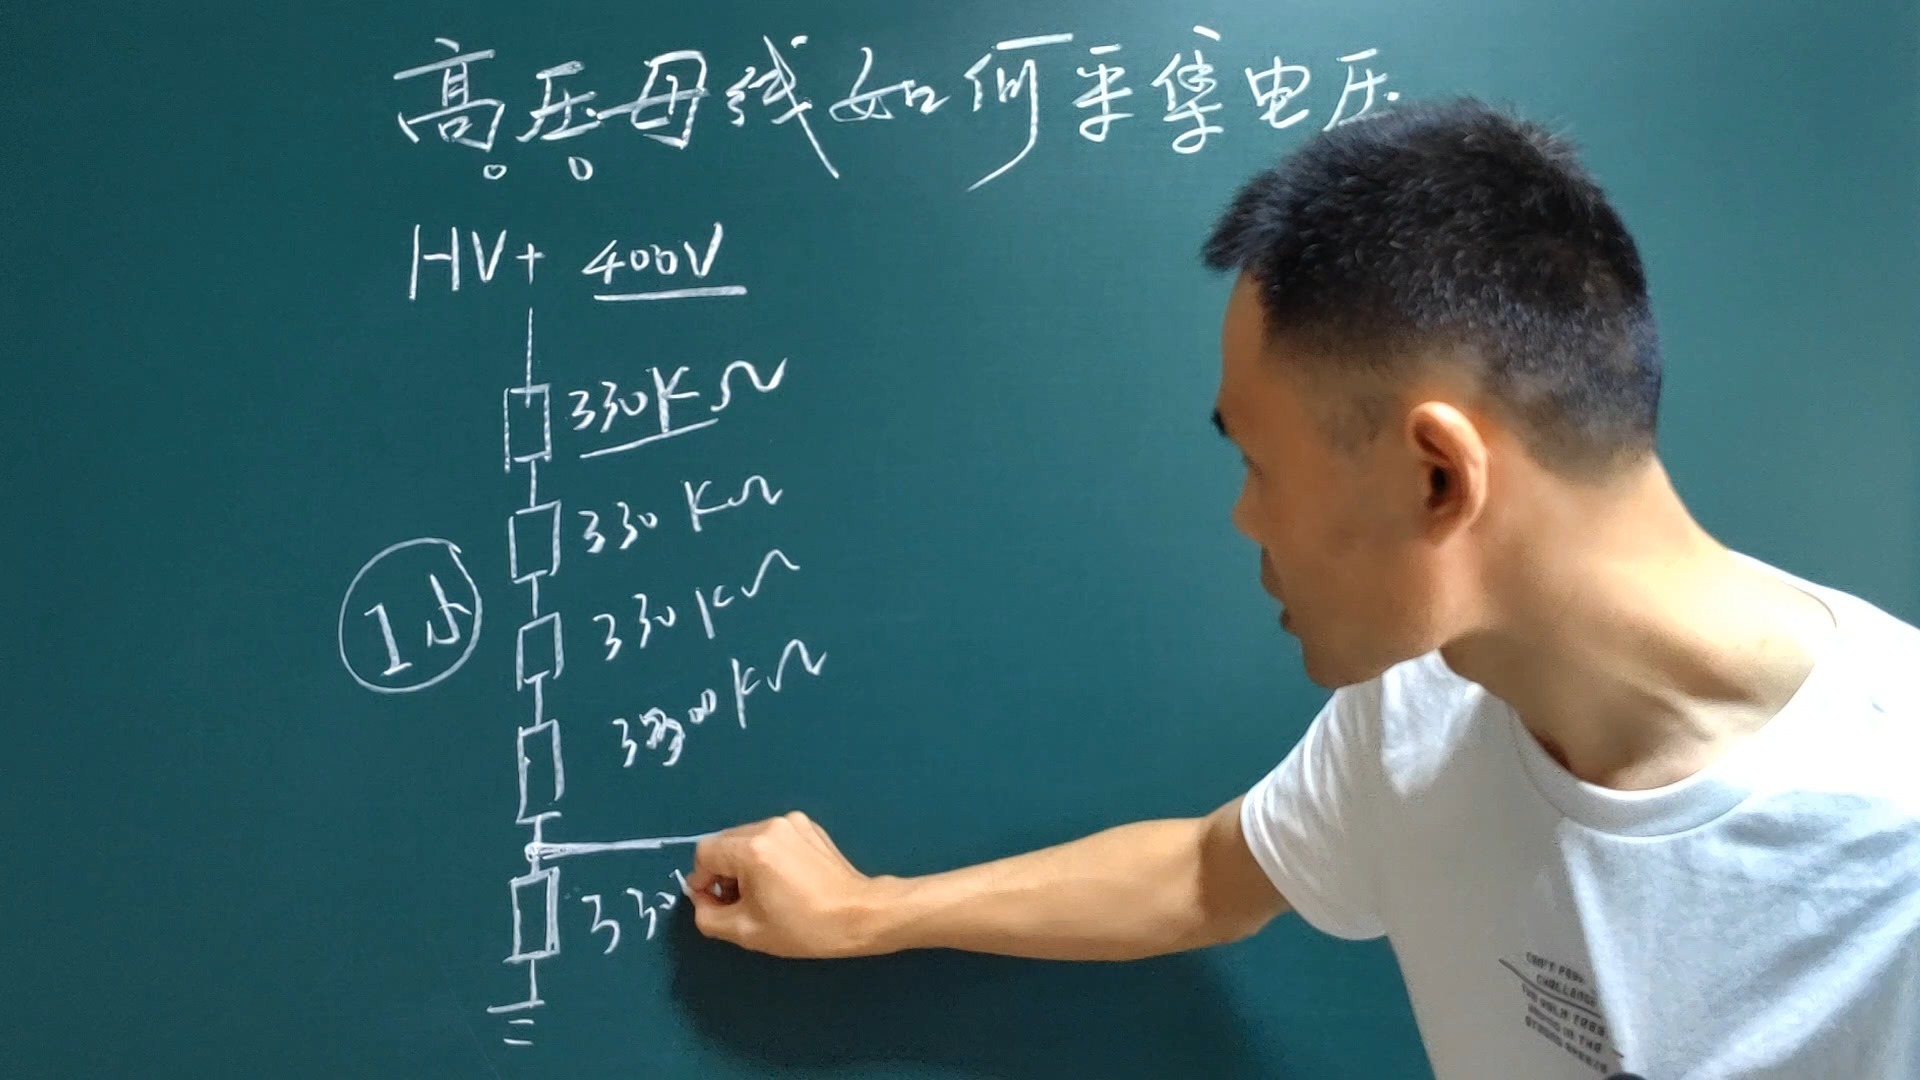 高压母线如何采集电压
HV+ 400V
330KΩ
330KΩ
I小
330KΩ
330KΩ
330